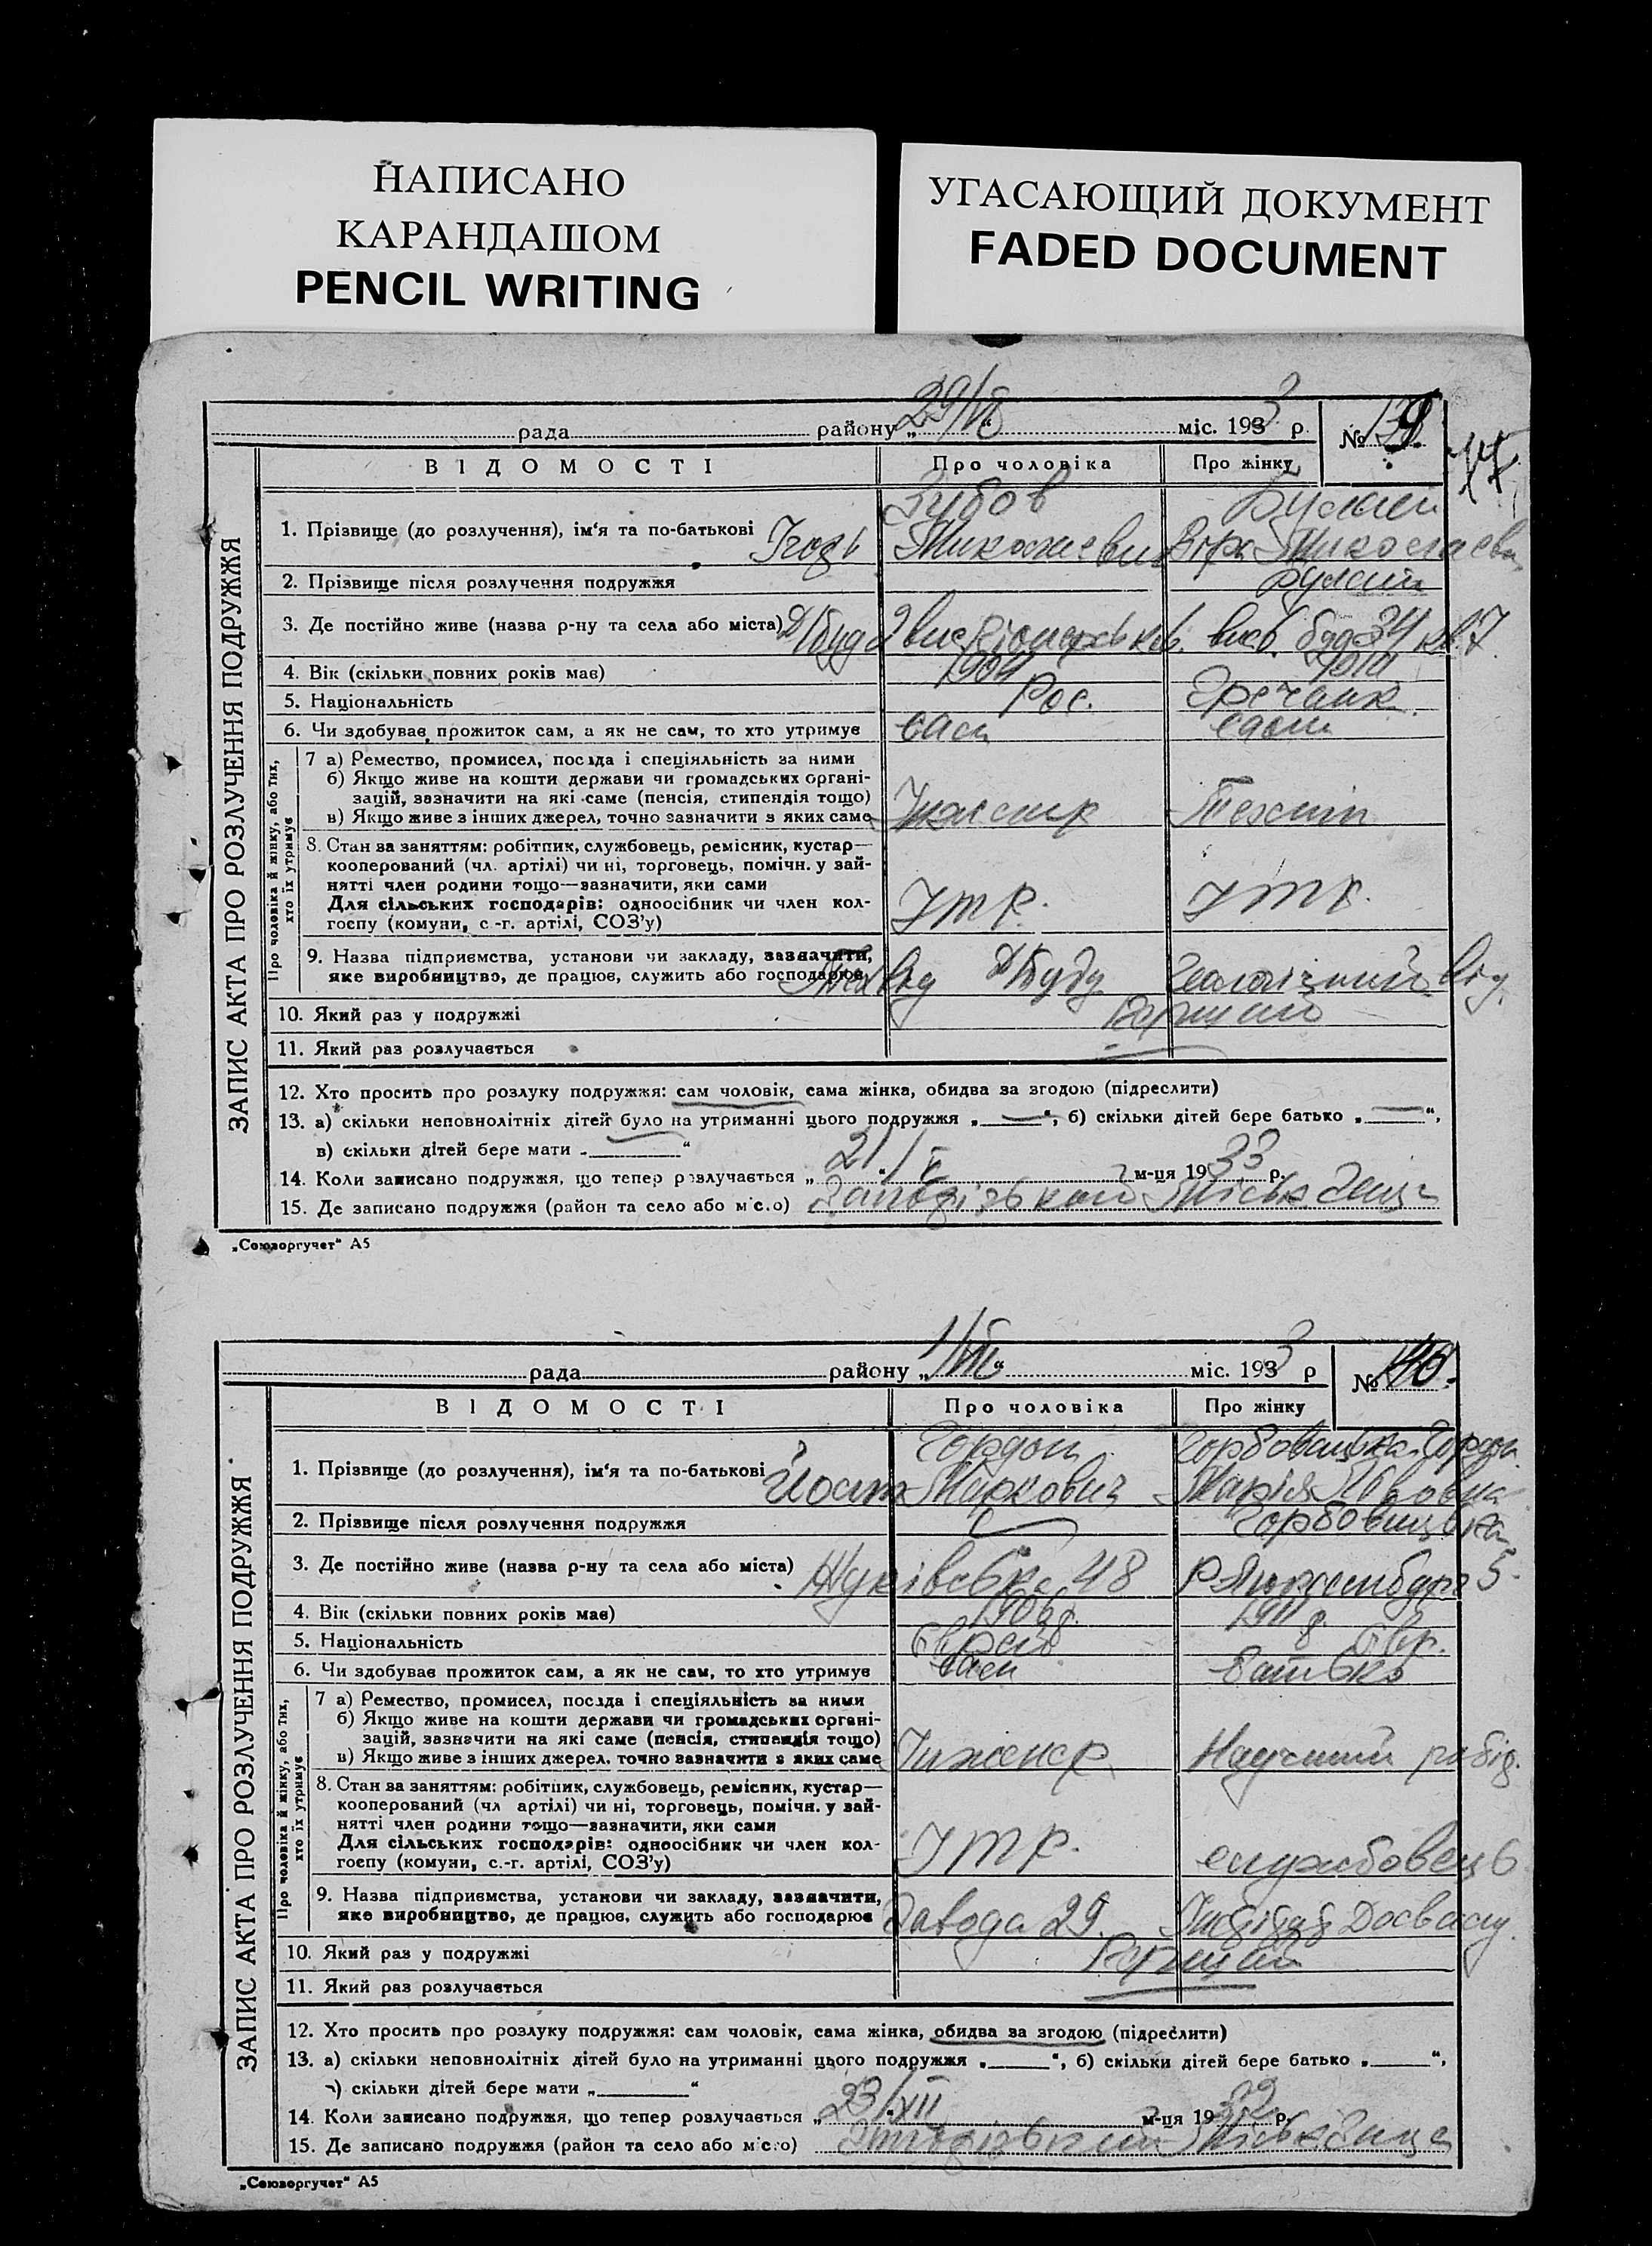 НАПИСАНО
КАРАНДАШОМ
PENCIL WRITING
УГАСАЮЩИЙ ДОКУМЕНТ
FADED DOCUMENT
ЗАПИС АКТА ПРО РОЗЛУЧЕННЯ ПОДРУЖЖЯ
рада району „29/VІІ“ міс. 1933 р. № 139.
ВІДОМОСТІ Про чоловіка Про жінку
Зубов
1. Прізвище (до розлучення), ім‘я та по-батькові Миколаєвич Віра Миколаєвн
2. Прізвище після розлучення подружжя
3. Де постійно живе (назва р-ну та села або міста) буд 34 кв. 7
4. Вік (скільки повних років має) 1904
5. Національність Рос. Гречанк.
6. Чи здобував прожиток сам, а як не сам, то хто утримує сам сама
Про чоловіка й жінку, або тих, хто їх утримує
7 а) Ремество, промисел, посада і спеціяльність за ними
б) Якщо живе на кошти держави чи громадських органі-
зацій, зазначити на які саме (пенсія, стипендія тощо)
в) Якщо живе з інших джерел, точно зазначити з яких саме Технік
8. Стан за заняттям: робітник, службовець, ремісник, кустар—
кооперований (чл. артілі) чи ні, торговець, помічн. у зай-
нятті член родини тощо—зазначити, яки сами
Для сільських господарів: одноосібник чи член кол-
госпу (комуни, с.-г. артілі, СОЗ’у) ІТР. ІТР.
9. Назва підприємства, установи чи закладу, зазначити,
яке виробництво, де працює, служить або господарює Геологічний від.
10. Який раз у подружжі Перший
11. Який раз розлучається
12. Хто просить про розлуку подружжя: сам чоловік, сама жінка, обидва за згодою (підреслити)
13. а) скільки неповнолітніх дітей було на утриманні цього подружжя „ — “, б) скільки дітей бере батько „ — “,
в) скільки дітей бере мати „ “
14. Коли записано подружжя, що тепер розлучається „21/V м-ця 1933 р.
15. Де записано подружжя (район та село або місто)
„Союзоргучет“ А5
ЗАПИС АКТА ПРО РОЗЛУЧЕННЯ ПОДРУЖЖЯ
рада району „1/VІІІ“ міс. 1933 р № 140.
ВІДОМОСТІ Про чоловіка Про жінку
Гордон Горбовицька-Гордон
1. Прізвище (до розлучення), ім‘я та по-батькові Маркович Марія Львовна
2. Прізвище після розлучення подружжя Горбовицька
3. Де постійно живе (назва р-ну та села або міста) 48 Р. Люксембург 5.
4. Вік (скільки повних років має) 1906 р. 1911 р.
5. Національність Євр.
6. Чи здобував прожиток сам, а як не сам, то хто утримує сам батько
Про чоловіка й жінку, або тих, хто їх утримує
7 а) Ремество, промисел, посада і спеціяльність за ними
б) Якщо живе на кошти держави чи громадських органі-
зацій, зазначити на які саме (пенсія, стипендія тощо)
в) Якщо живе з інших джерел, точно зазначити з яких саме Інженер Научний робід.
8. Стан за заняттям: робітник, службовець, ремісник, кустар—
кооперований (чл артілі) чи ні, торговець, помічн. у зай-
нятті член родини тощо—зазначити, яки сами
Для сільських господарів: одноосібник чи член кол-
госпу (комуни, с.-г. артілі, СОЗ’у) ІТР. службовець
9. Назва підприємства, установи чи закладу, зазначити,
яке виробництво, де працює, служить або господарює Завода 29.
10. Який раз у подружжі Перший
11. Який раз розлучається
12. Хто просить про розлуку подружжя: сам чоловік, сама жінка, обидва за згодою (підреслити)
13. а) скільки неповнолітніх дітей було на утриманні цього подружжя „ “, б) скільки дітей бере батько „ “,
в) скільки дітей бере мати „ “
14. Коли записано подружжя, що тепер розлучається „23/XII м-ця 1932 р.
15. Де записано подружжя (район та село або місто)
„Союзоргучет“ А5